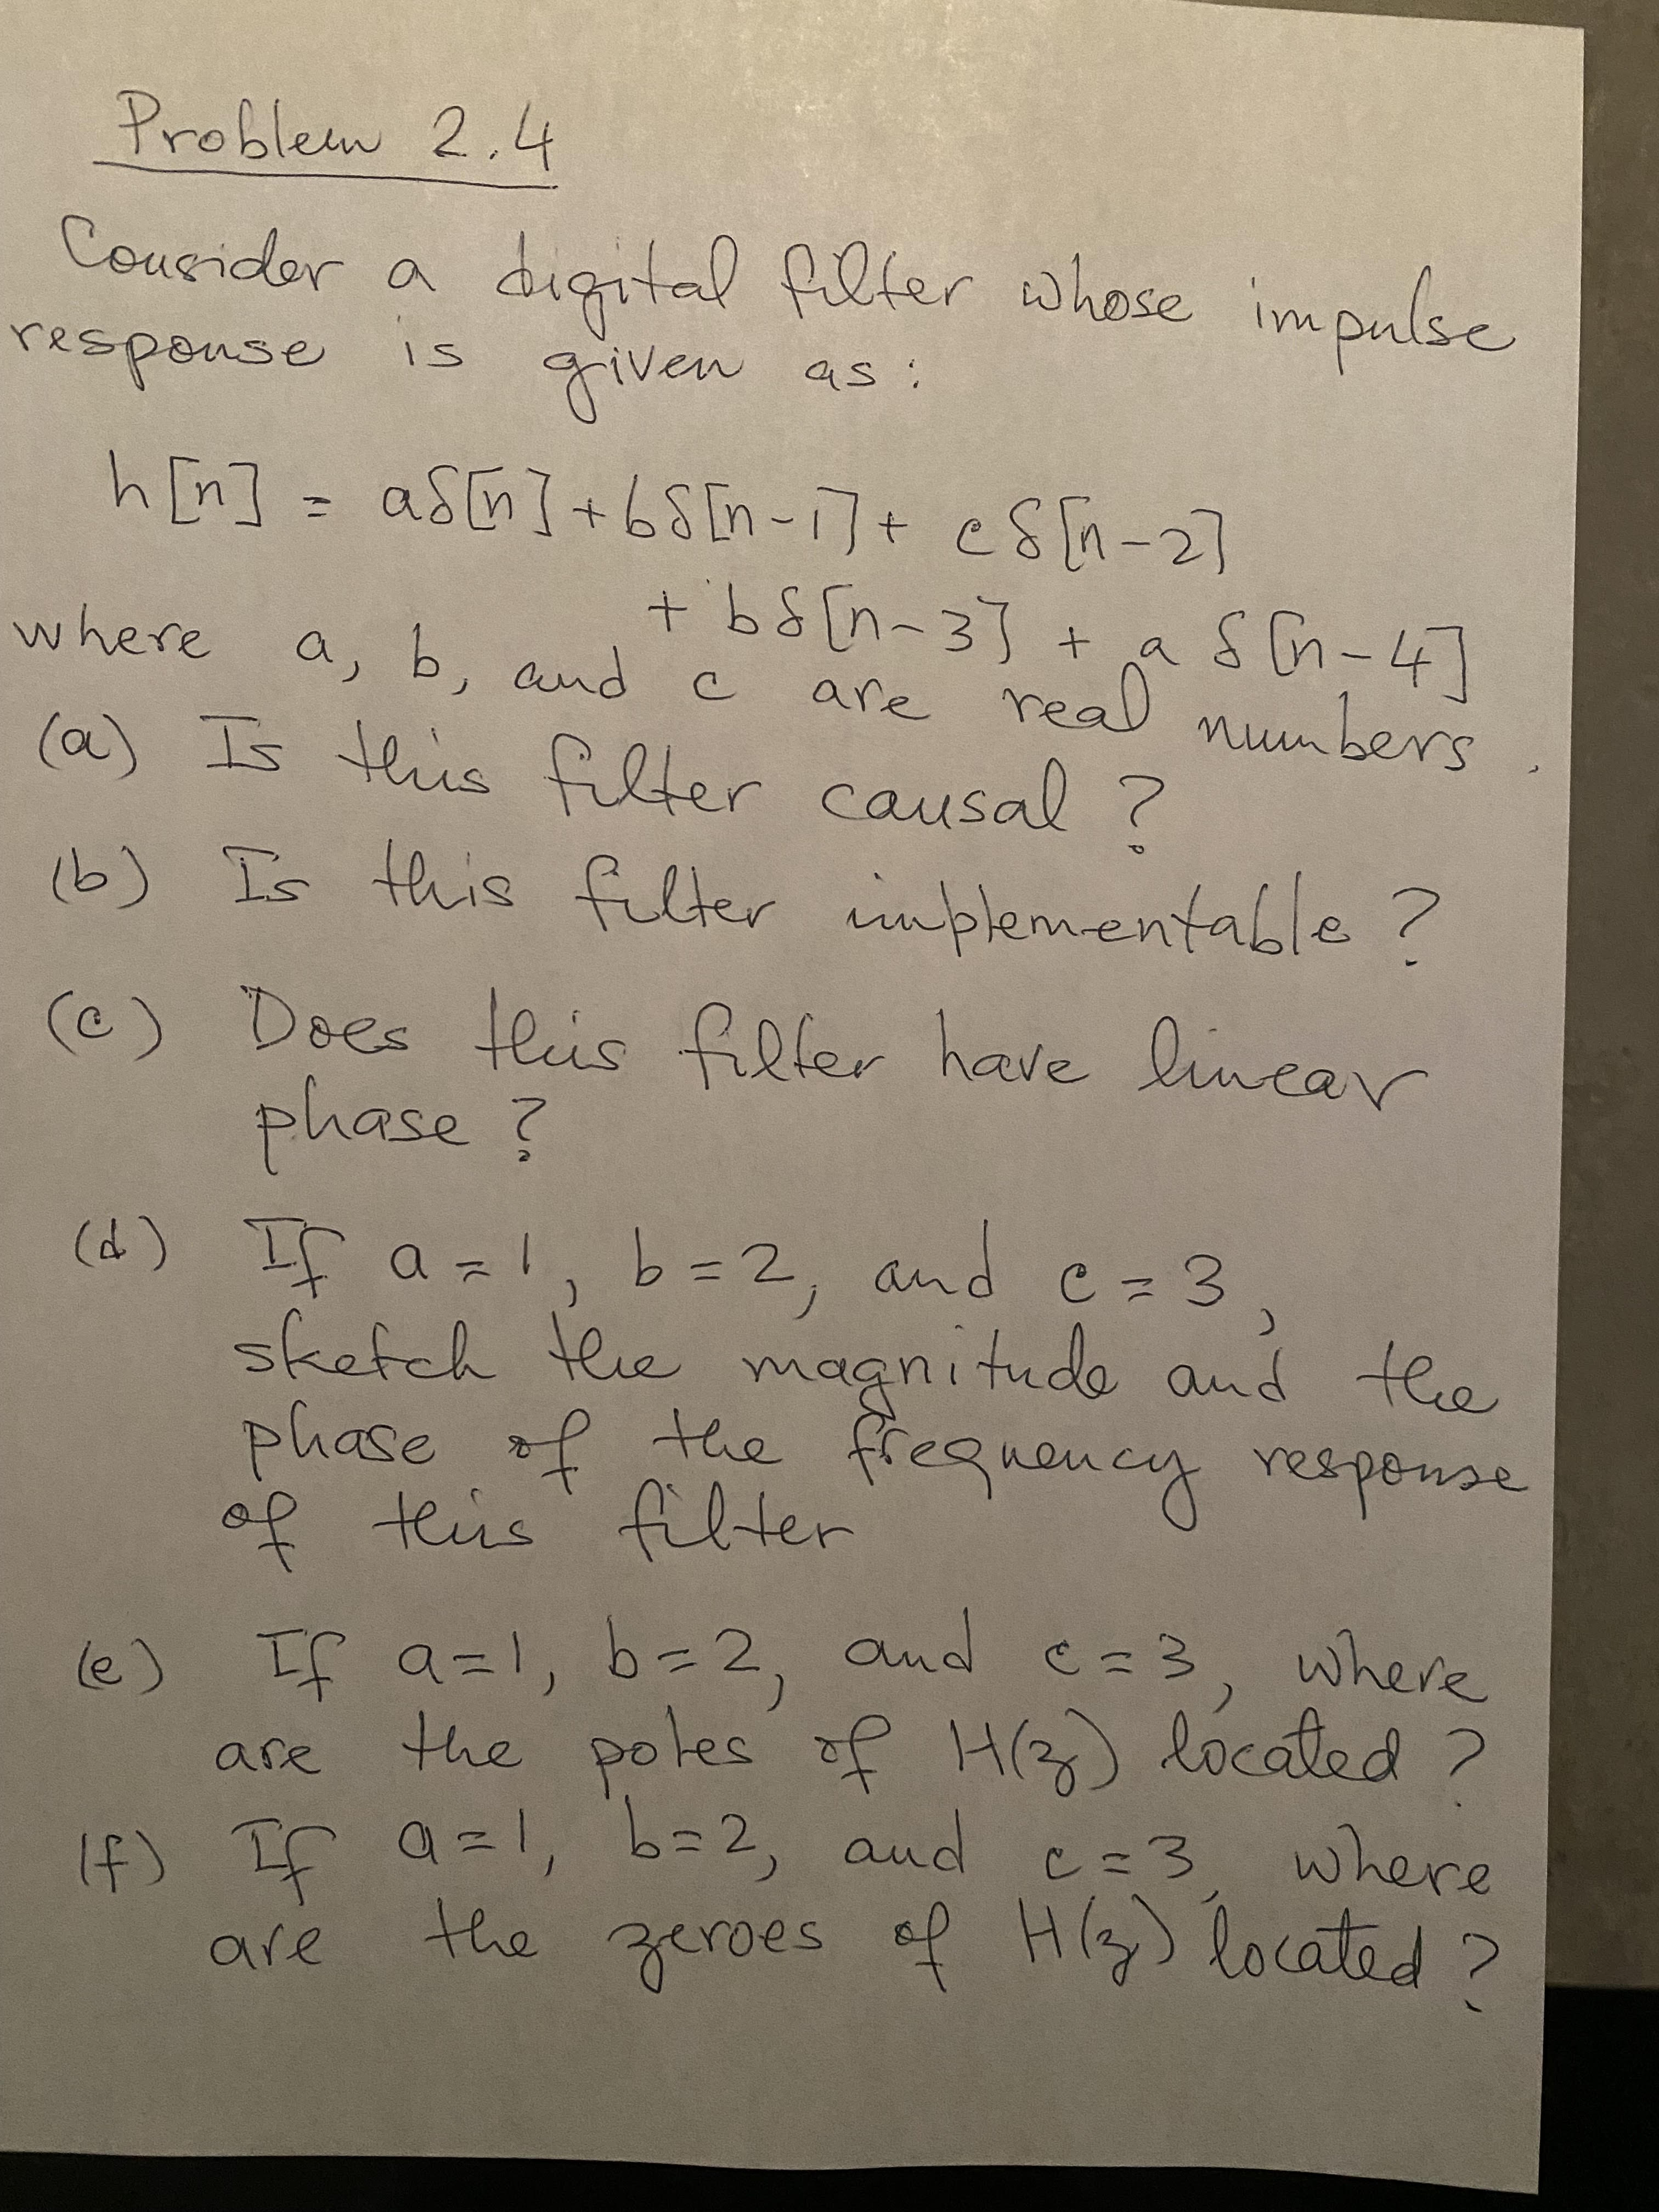 Problem 2.4
Consider a digital filter whose impulse
response is given as:
h[n] = aδ[n] + bδ[n-1] + cδ[n-2]
+ bδ[n-3] + aδ[n-4]
where a, b, and c are real numbers.
(a) Is this filter causal?
(b) Is this filter implementable?
(c) Does this filter have linear
phase?
(d) If a=1, b=2, and c=3,
sketch the magnitude and the
phase of the frequency response
of this filter
(e) If a=1, b=2, and c=3, where
are the poles of H(z) located?
(f) If a=1, b=2, and c=3, where
are the zeroes of H(z) located?